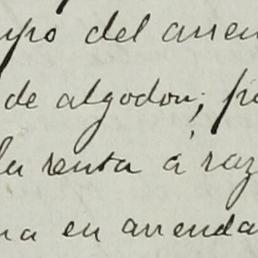 upo del arren
de algodon; po
la renta á raz
na en arrenda